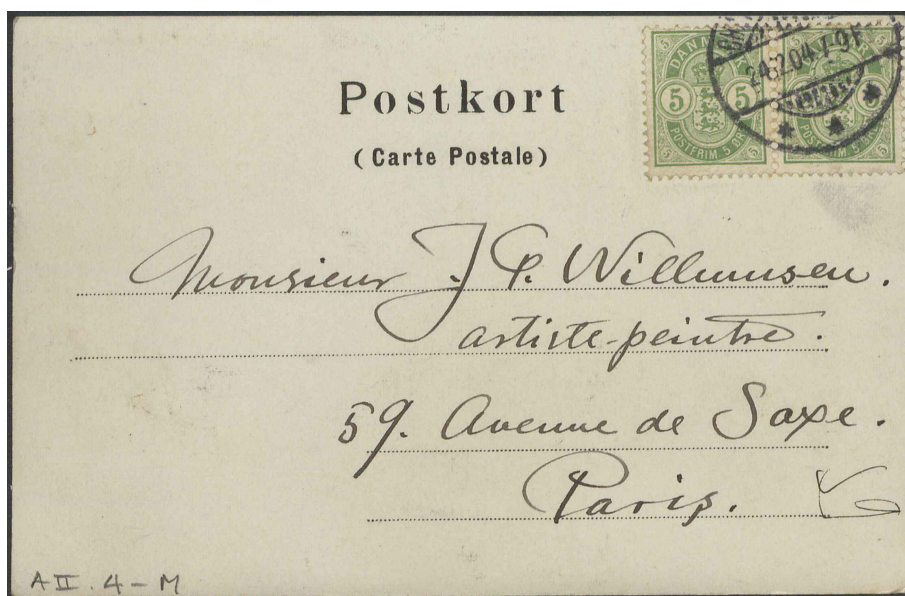 Postkort
(Carte Postale)
5 DANMARK 5
5 5
POSTFRIM. 5 ØRE
24.2.04.7-9F
Monsieur J. F. Willumsen.
artiste-peintre.
59. Avenue de Saxe.
Paris.
A II. 4 - M